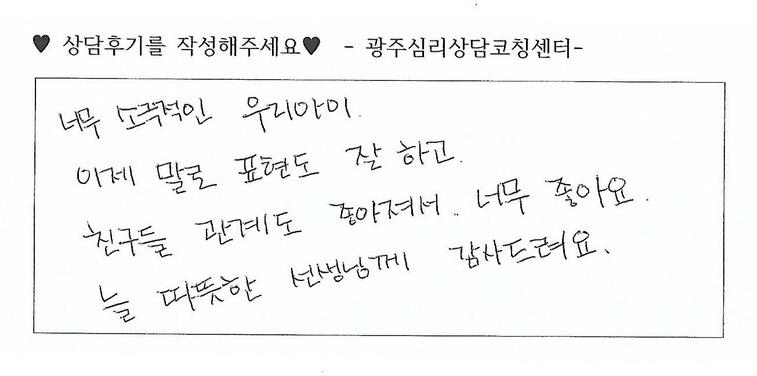 ♥ 상담후기를 작성해주세요♥ - 광주심리상담코칭센터-
너무 소극적인 우리아이.
이제 말로 표현도 잘 하고.
친구들 관계도 좋아져서.. 너무 좋아요.
늘 따뜻한 선생님께 감사드려요.